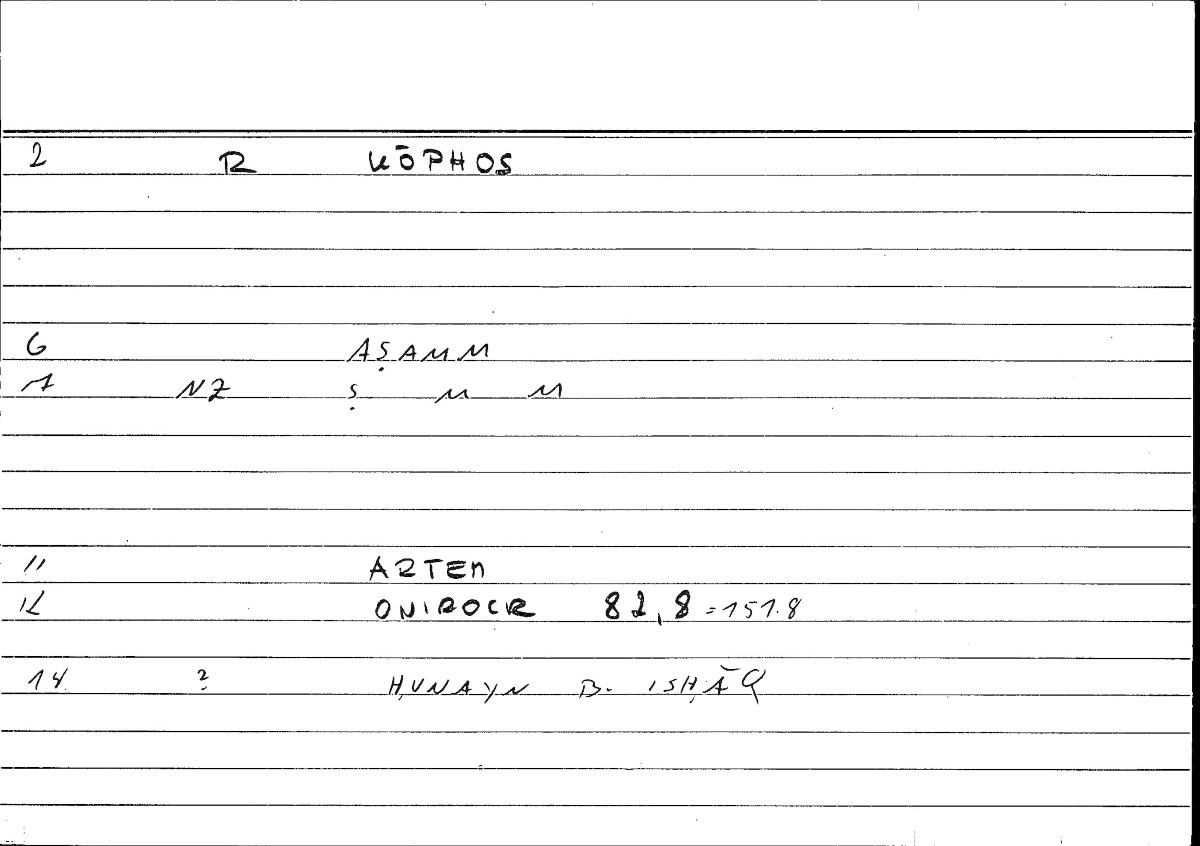 2 R KŌPHOS
6 AṢAMM
7 NZ Ṣ M M
11 ARTEM
12 ONIROCR 82,8 = 151.8
14 ? ḤUNAYN B. ISḤĀQ